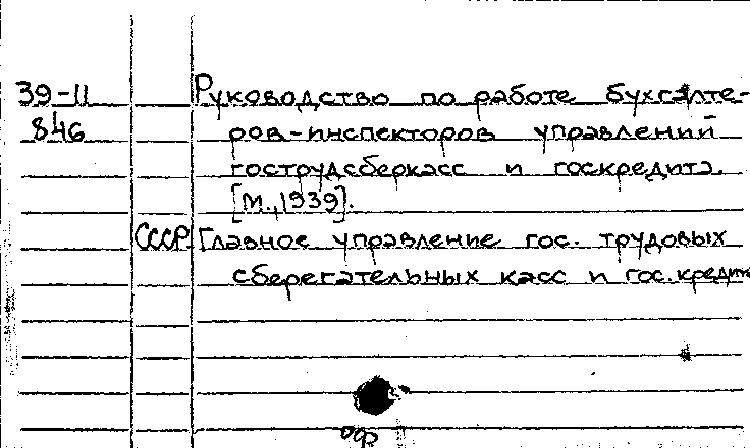 39-11 Руководство по работе бухгалте-
846 ров-инспекторов управлений
гострудсберкасс и госкредита.
[М., 1939].
СССР. Главное управление гос. трудовых
сберегательных касс и гос. кредита
оф